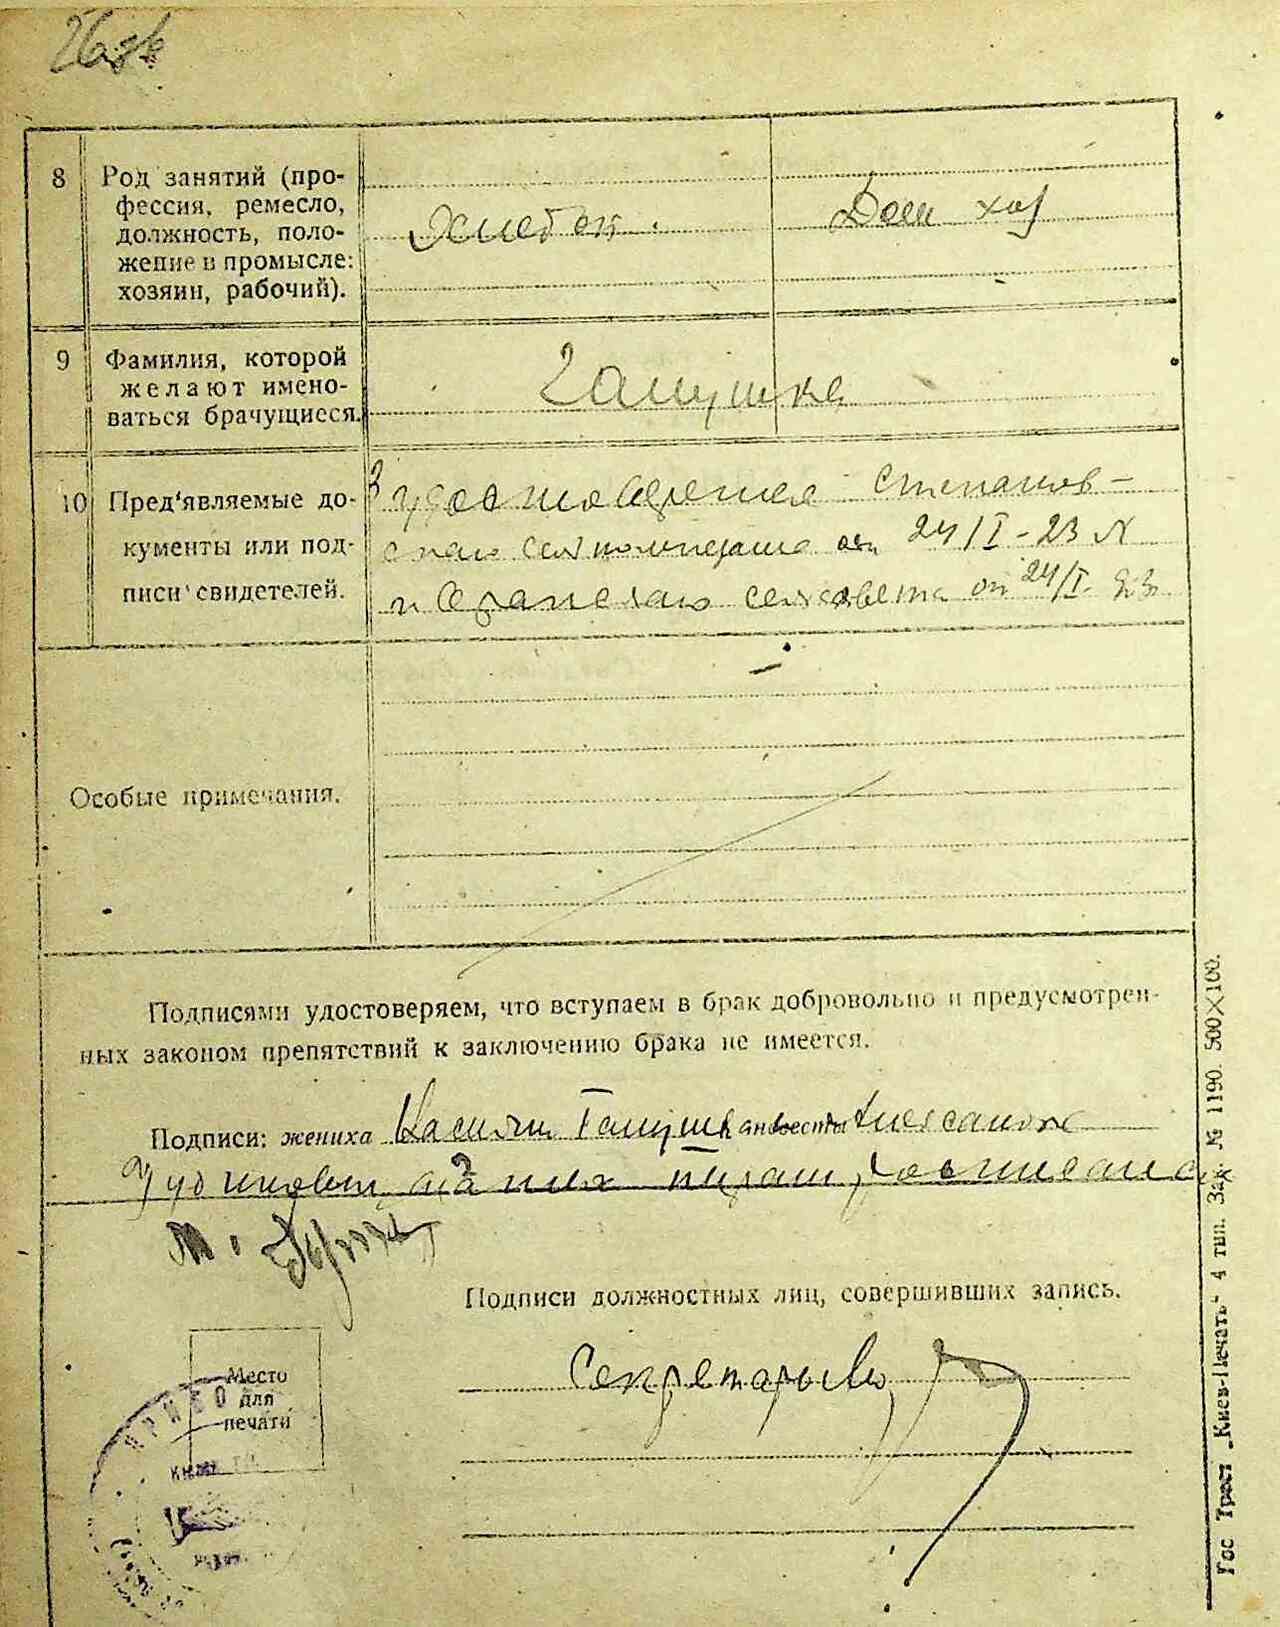 8 Род занятий (про-
фессия, ремесло,
должность, поло-
жение в промысле:
хозяин, рабочий).
Хлебоп. Дом хоз
9 Фамилия, которой
желают имено-
ваться брачущиеся.
Галушка
10 Пред'являемые до-
кументы или под-
писи свидетелей.
удостоверения Степанов-
ского селькомитета от 24/I-23 №
и сельсовета от 24/I-23.
Особые примечания.
Подписями удостоверяем, что вступаем в брак добровольно и предусмотрен-
ных законом препятствий к заключению брака не имеется.
Подписи: жениха Касиян Галушка невесты
расписался
М.
Подписи должностных лиц, совершивших запись.
Секретарь
Место
для
печати
Гос Трест „Киев-Печать“ 4 тип. Зак. № 1190. 500×100.